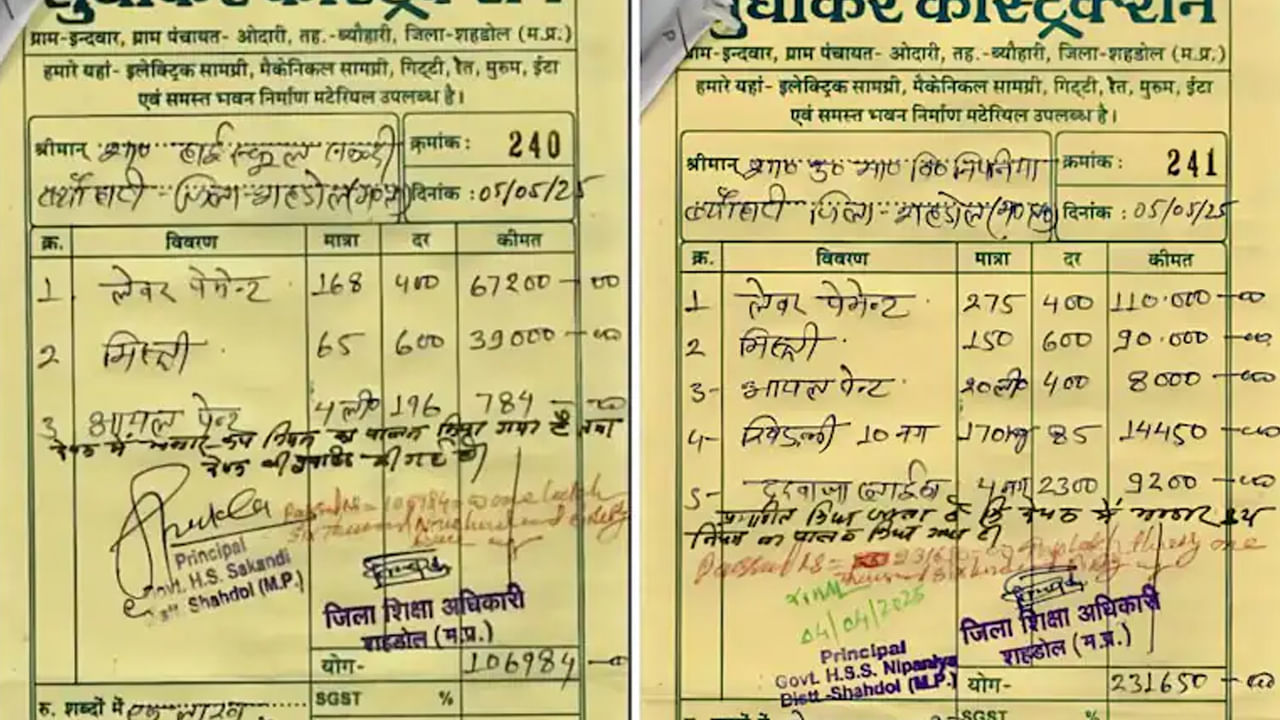 सुधाकर कंस्ट्रक्शन
ग्राम-इन्दवार, ग्राम पंचायत- ओदारी, तह.-ब्यौहारी, जिला-शहडोल (म.प्र.)
हमारे यहां- इलेक्ट्रिक सामग्री, मैकेनिकल सामग्री, गिट्टी, रेत, मुरुम, ईटा
एवं समस्त भवन निर्माण मटेरियल उपलब्ध है।
श्रीमान् शा० हाई स्कूल सकन्दी
क्रमांक : 240
जिला-शहडोल (म०प्र०)
दिनांक : 05/05/25
क्र. विवरण मात्रा दर कीमत
1 लेबर पेमेन्ट 168 400 67200-00
2 मिस्त्री 65 600 39000-00
3 आयल पेन्ट 4 ली० 196 784-00
Shukla
Principal
Govt. H.S. Sakandi
Distt. Shahdol (M.P.)
जिला शिक्षा अधिकारी
शहडोल (म.प्र.)
योग- 106984-00
SGST %
रु. शब्दों में एक लाख
सुधाकर कंस्ट्रक्शन
ग्राम-इन्दवार, ग्राम पंचायत- ओदारी, तह.-ब्यौहारी, जिला-शहडोल (म.प्र.)
हमारे यहां- इलेक्ट्रिक सामग्री, मैकेनिकल सामग्री, गिट्टी, रेत, मुरुम, ईटा
एवं समस्त भवन निर्माण मटेरियल उपलब्ध है।
श्रीमान् शा० उ० मा० वि० निपनिया
क्रमांक : 241
जिला-शहडोल (म०प्र०)
दिनांक : 05/05/25
क्र. विवरण मात्रा दर कीमत
1 लेबर पेमेन्ट 275 400 110.000-00
2 मिस्त्री 150 600 90.000-00
3- आयल पेन्ट 20 ली० 400 8000-00
4- खिड़की 10 नग 170 kg 85 14450-00
5- दरवाजा 4 नग 2300 9200-00
04/04/2025
Principal
Govt. H.S.S. Nipaniya
Distt-Shahdol (M.P.)
जिला शिक्षा अधिकारी
शहडोल (म.प्र.)
योग- 231650-00
SGST %